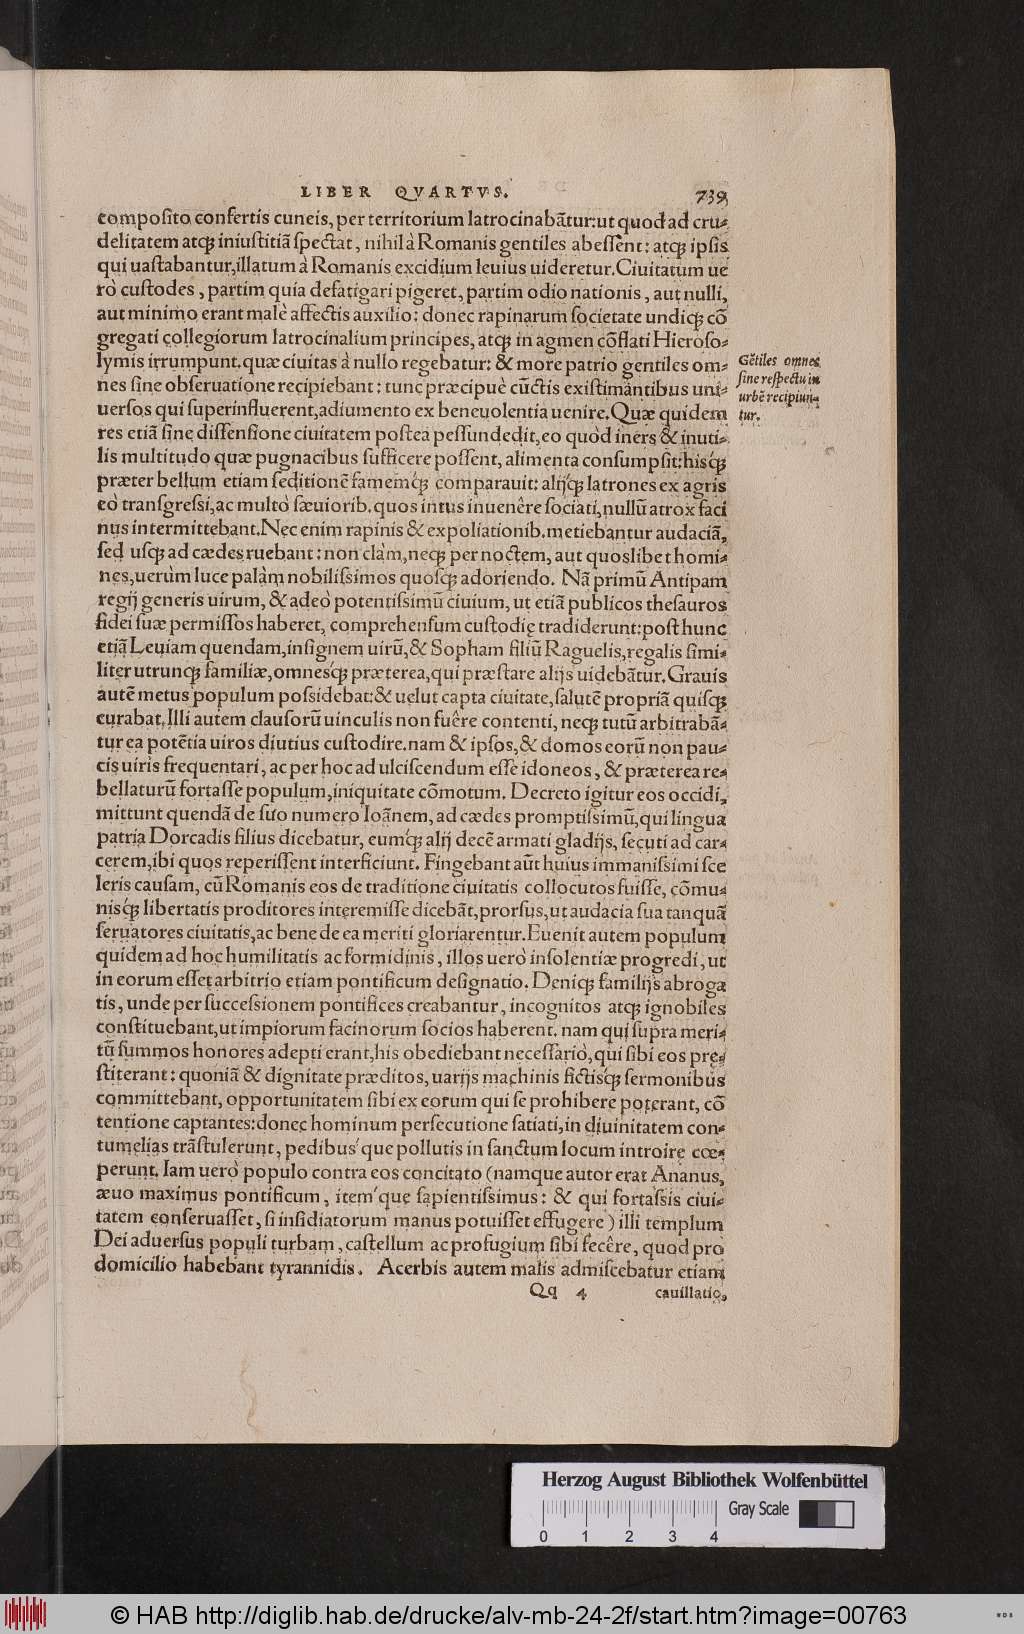 LIBER QVARTVS. 739
composito confertis cuneis, per territorium latrocinabãtur: ut quod ad cru-
delitatem atqꝫ iniustitiã spectat, nihil à Romanis gentiles abessent: atqꝫ ipsis
qui uastabantur, illatum à Romanis excidium leuius uideretur. Ciuitatum ue
rò custodes, partim quia defatigari pigeret, partim odio nationis, aut nulli,
aut minimo erant malè affectis auxilio: donec rapinarum societate undiqꝫ cõ
gregati collegiorum latrocinalium principes, atqꝫ in agmen cõflati Hieroso-
lymis irrumpunt. quæ ciuitas à nullo regebatur: & more patrio gentiles om-
nes sine obseruatione recipiebant: tunc præcipuè cũctis existimantibus uni-
uersos qui superinfluerent, adiumento ex beneuolentia uenire. Quæ quidem
res etiã sine dissensione ciuitatem postea pessundedit, eo quòd iners & inuti-
lis multitudo quæ pugnacibus sufficere possent, alimenta consumpsit: hisq́ꝫ
præter bellum etiam seditionẽ famemq́ꝫ comparauit: alijq́ꝫ latrones ex agris
eò transgressi, ac multò sæuiorib. quos intus inuenêre sociati, nullũ atrox faci
nus intermittebant. Nec enim rapinis & expoliationib. metiebantur audaciã,
sed usqꝫ ad cædes ruebant: non clàm, neqꝫ per noctem, aut quoslibet homi-
nes, uerùm luce palàm nobilissimos quosqꝫ adoriendo. Nã primũ Antipam
regij generis uirum, & adeò potentissimũ ciuium, ut etiã publicos thesauros
fidei suæ permissos haberet, comprehensum custodię tradiderunt: post hunc
etiã Leuiam quendam, insignem uirũ, & Sopham filiũ Raguelis, regalis simi-
liter utrunqꝫ familiæ, omnesq́ꝫ præterea, qui præstare alijs uidebãtur. Grauis
autẽ metus populum possidebat: & uelut capta ciuitate, salutẽ propriã quisqꝫ
curabat. Illi autem clausorũ uinculis non fuêre contenti, neqꝫ tutũ arbitrabã-
tur ea potẽtia uiros diutius custodire. nam & ipsos, & domos eorũ non pau-
cis uiris frequentari, ac per hoc ad ulciscendum esse idoneos, & præterea re-
bellaturũ fortasse populum, iniquitate cõmotum. Decreto igitur eos occidi,
mittunt quendã de suo numero Ioãnem, ad cædes promptissimũ, qui lingua
patria Dorcadis filius dicebatur, eumq́ꝫ alij decẽ armati gladijs, secuti ad car-
cerem, ibi quos reperissent interficiunt. Fingebant aũt huius immanissimi sce
leris causam, cũ Romanis eos de traditione ciuitatis collocutos fuisse, cõmu-
nisq́ꝫ libertatis proditores interemisse dicebãt, prorsus, ut audacia sua tanquã
seruatores ciuitatis, ac bene de ea meriti gloriarentur. Euenit autem populum
quidem ad hoc humilitatis ac formidinis, illos uerò insolentiæ progredi, ut
in eorum esset arbitrio etiam pontificum designatio. Deniqꝫ familijs abroga
tis, unde per successionem pontifices creabantur, incognitos atqꝫ ignobiles
constituebant, ut impiorum facinorum socios haberent. nam qui supra meri-
tũ summos honores adepti erant, his obediebant necessariò, qui sibi eos pre-
stiterant: quoniã & dignitate præditos, uarijs machinis fictisq́ꝫ sermonibus
committebant, opportunitatem sibi ex eorum qui se prohibere poterant, cõ
tentione captantes: donec hominum persecutione satiati, in diuinitatem con-
tumelias trãstulerunt, pedibus´que pollutis in sanctum locum introire cœ-
perunt. Iam uerò populo contra eos concitato (namque autor erat Ananus,
æuo maximus pontificum, item´que sapientissimus: & qui fortassis ciui-
tatem conseruasset, si insidiatorum manus potuisset effugere) illi templum
Dei aduersus populi turbam, castellum ac profugium sibi fecêre, quod pro
domicilio habebant tyrannidis. Acerbis autem malis admiscebatur etiam
Qq 4 cauillatio,
Gẽtiles omnes
sine respectu in
urbẽ recipiun-
tur.
Herzog August Bibliothek Wolfenbüttel
Gray Scale
0 1 2 3 4
© HAB http://diglib.hab.de/drucke/alv-mb-24-2f/start.htm?image=00763